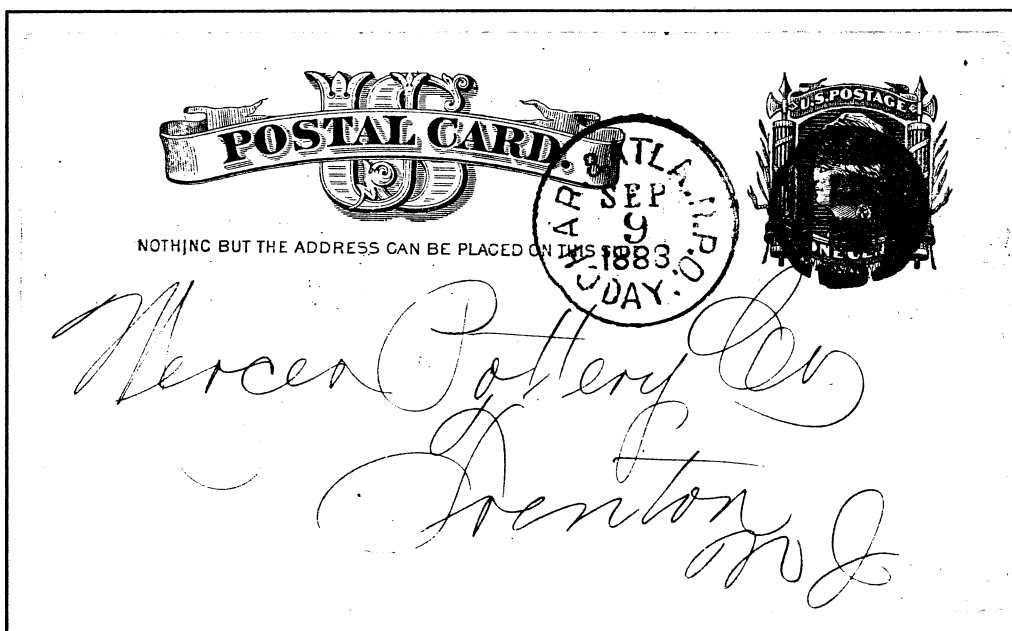 US
POSTAL CARD.
U.S. POSTAGE
NOTHING BUT THE ADDRESS CAN BE PLACED ON THIS
ONE
CHAR. & ATLA. R.P.O.
SEP
9
1883
DAY.
Mercer Pottery Co
Trenton
N J